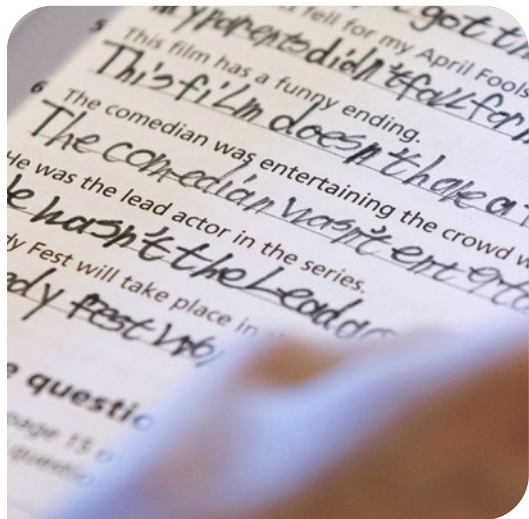 s fell for my April Fools
got t
my parents didn't fall for m
5 This film has a funny ending.
This film doesn't have a
6 The comedian was entertaining the crowd w
The comedian wasn't enterta
He was the lead actor in the series.
e hasn't the Lead ac
dy Fest will take place in
edy Fest wo
e questio
page 15 o
questio